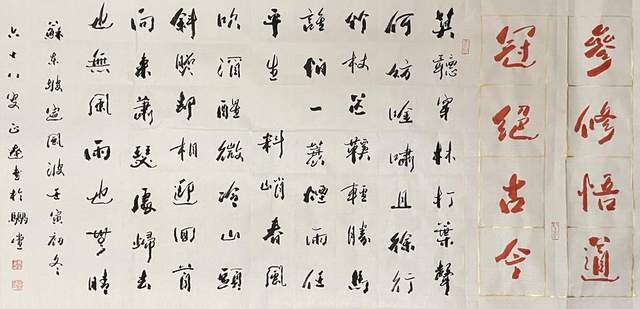 參修悟道
冠絕古今
莫聽穿林打葉聲
何妨吟嘯且徐行
竹杖芒鞋輕勝馬
誰怕一蓑煙雨任
平生料峭春風
吹酒醒微冷山頭
斜照却相迎回首
向來蕭瑟處歸去
也無風雨也無晴
蘇東坡定風波壬寅初冬
六十八叟正書於鵬堂